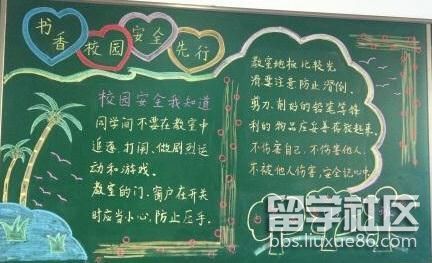 书香
校园
安全
先行
校园安全我知道
同学间不要在教室中
追逐、打闹、做剧烈运
动和游戏。
教室的门、窗户在开关
时应当小心,防止压手。
教室地板比较光
滑要注意防止滑倒。
剪刀、削好的铅笔等锋
利的物品应妥善存放起来。
不伤害自己,不伤害他人,
不被他人伤害,安全记心中
留学社区
bbs.liuxue86.com